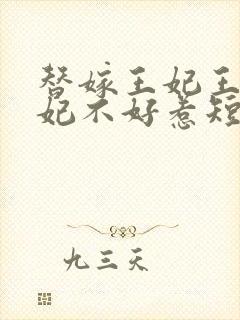 替嫁王妃王
妃不好惹短
九三天